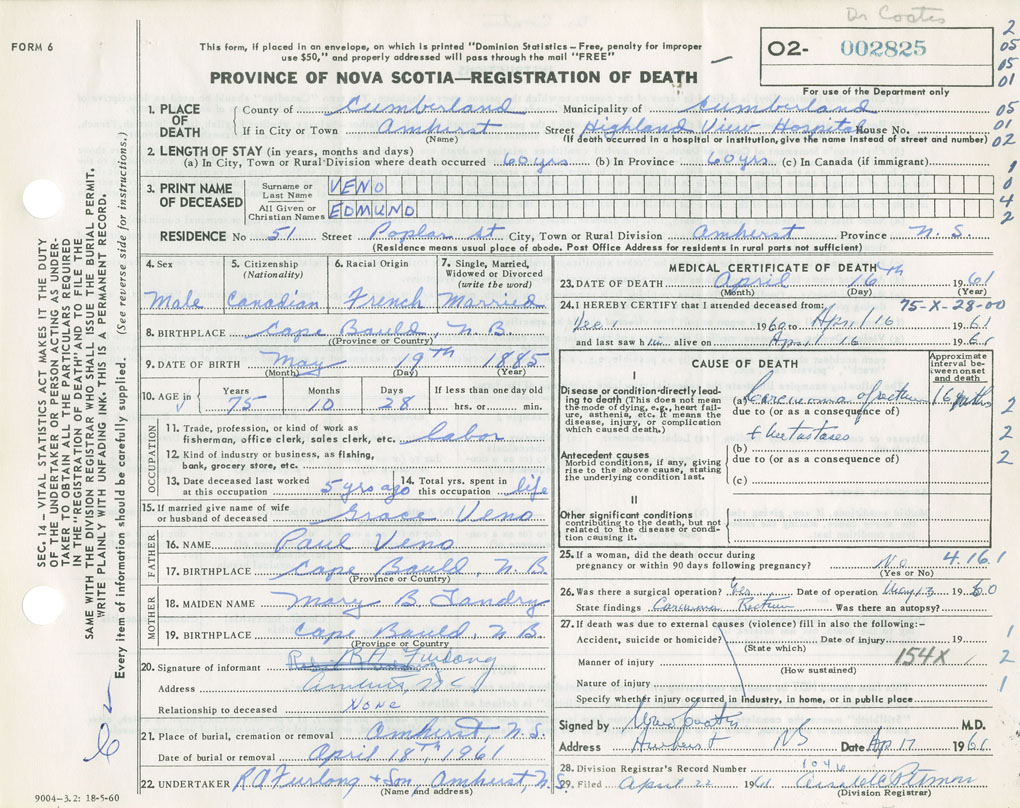 Dr Coates
FORM 6
This form, if placed in an envelope, on which is printed "Dominion Statistics—Free, penalty for improper
use $50," and properly addressed will pass through the mail "FREE"
PROVINCE OF NOVA SCOTIA—REGISTRATION OF DEATH
O2- 002825
For use of the Department only
2
05
05
01
05
01
02
1
0
4
2
1. PLACE OF DEATH
County of Cumberland Municipality of Cumberland
If in City or Town Amherst Street Highland View Hospital House No.
(Name) (If death occurred in a hospital or institution, give the name instead of street and number)
2. LENGTH OF STAY (in years, months and days)
(a) In City, Town or Rural Division where death occurred 60 yrs (b) In Province 60 yrs (c) In Canada (if immigrant)
3. PRINT NAME OF DECEASED
Surname or Last Name VENO
All Given or Christian Names EDMUND
RESIDENCE No 51 Street Poplar St City, Town or Rural Division Amherst Province N. S.
(Residence means usual place of abode. Post Office Address for residents in rural parts not sufficient)
4. Sex
Male
5. Citizenship (Nationality)
Canadian
6. Racial Origin
French
7. Single, Married, Widowed or Divorced (write the word)
Married
8. BIRTHPLACE Cape Bauld, N. B.
(Province or Country)
9. DATE OF BIRTH May 19th 1885
(Month) (Day) (Year)
10. AGE in
Years Months Days If less than one day old
75 10 28 hrs. or min.
OCCUPATION
11. Trade, profession, or kind of work as
fisherman, office clerk, sales clerk, etc. labor
12. Kind of industry or business, as fishing,
bank, grocery store, etc.
13. Date deceased last worked at this occupation 5 yrs ago
14. Total yrs. spent in this occupation life
15. If married give name of wife
or husband of deceased Grace Veno
FATHER
16. NAME Paul Veno
17. BIRTHPLACE Cape Bauld, N. B.
(Province or Country)
MOTHER
18. MAIDEN NAME Mary B Landry
19. BIRTHPLACE Cape Bauld, N. B.
(Province or Country)
20. Signature of informant R A Furlong
Address
Relationship to deceased None
21. Place of burial, cremation or removal Amherst, N. S.
Date of burial or removal April 18th, 1961
22. UNDERTAKER R A Furlong & Son, Amherst, N. S.
(Name and address)
MEDICAL CERTIFICATE OF DEATH
23. DATE OF DEATH April 16th 1961
(Month) (Day) (Year)
24. I HEREBY CERTIFY that I attended deceased from: 75-X-28-00
Dec 1 1960 to April 16 1961
and last saw him alive on April 16 1961
CAUSE OF DEATH
Approximate interval between onset and death
I
Disease or condition directly leading to death (This does not mean the mode of dying, e.g., heart failure, asthenia, etc. It means the disease, injury, or complication which caused death.)
(a) Carcinoma of rectum 16 months
due to (or as a consequence of)
+ Metastases
Antecedent causes
Morbid conditions, if any, giving rise to the above cause, stating the underlying condition last.
(b)
due to (or as a consequence of)
(c)
II
Other significant conditions
contributing to the death, but not related to the disease or condition causing it.
2
2
2
25. If a woman, did the death occur during
pregnancy or within 90 days following pregnancy? No 4.16.1
(Yes or No)
26. Was there a surgical operation? Yes Date of operation May 13 1960
State findings Carcinoma Rectum Was there an autopsy?
27. If death was due to external causes (violence) fill in also the following:—
Accident, suicide or homicide? Date of injury 19
(State which)
Manner of injury 154X
(How sustained)
Nature of injury
Specify whether injury occurred in industry, in home, or in public place
1
2
1
Signed by Coates M.D.
Address Amherst NS Date Ap 17 1961
28. Division Registrar's Record Number 1046
29. Filed April 22 1961
(Division Registrar)
SEC. 14—VITAL STATISTICS ACT MAKES IT THE DUTY
OF THE UNDERTAKER OR PERSON ACTING AS UNDER-
TAKER TO OBTAIN ALL THE PARTICULARS REQUIRED
IN THE "REGISTRATION OF DEATH" AND TO FILE THE
SAME WITH THE DIVISION REGISTRAR WHO SHALL ISSUE THE BURIAL PERMIT.
WRITE PLAINLY WITH UNFADING INK. THIS IS A PERMANENT RECORD.
Every item of information should be carefully supplied. (See reverse side for instructions.)
9004-3.2: 18-5-60